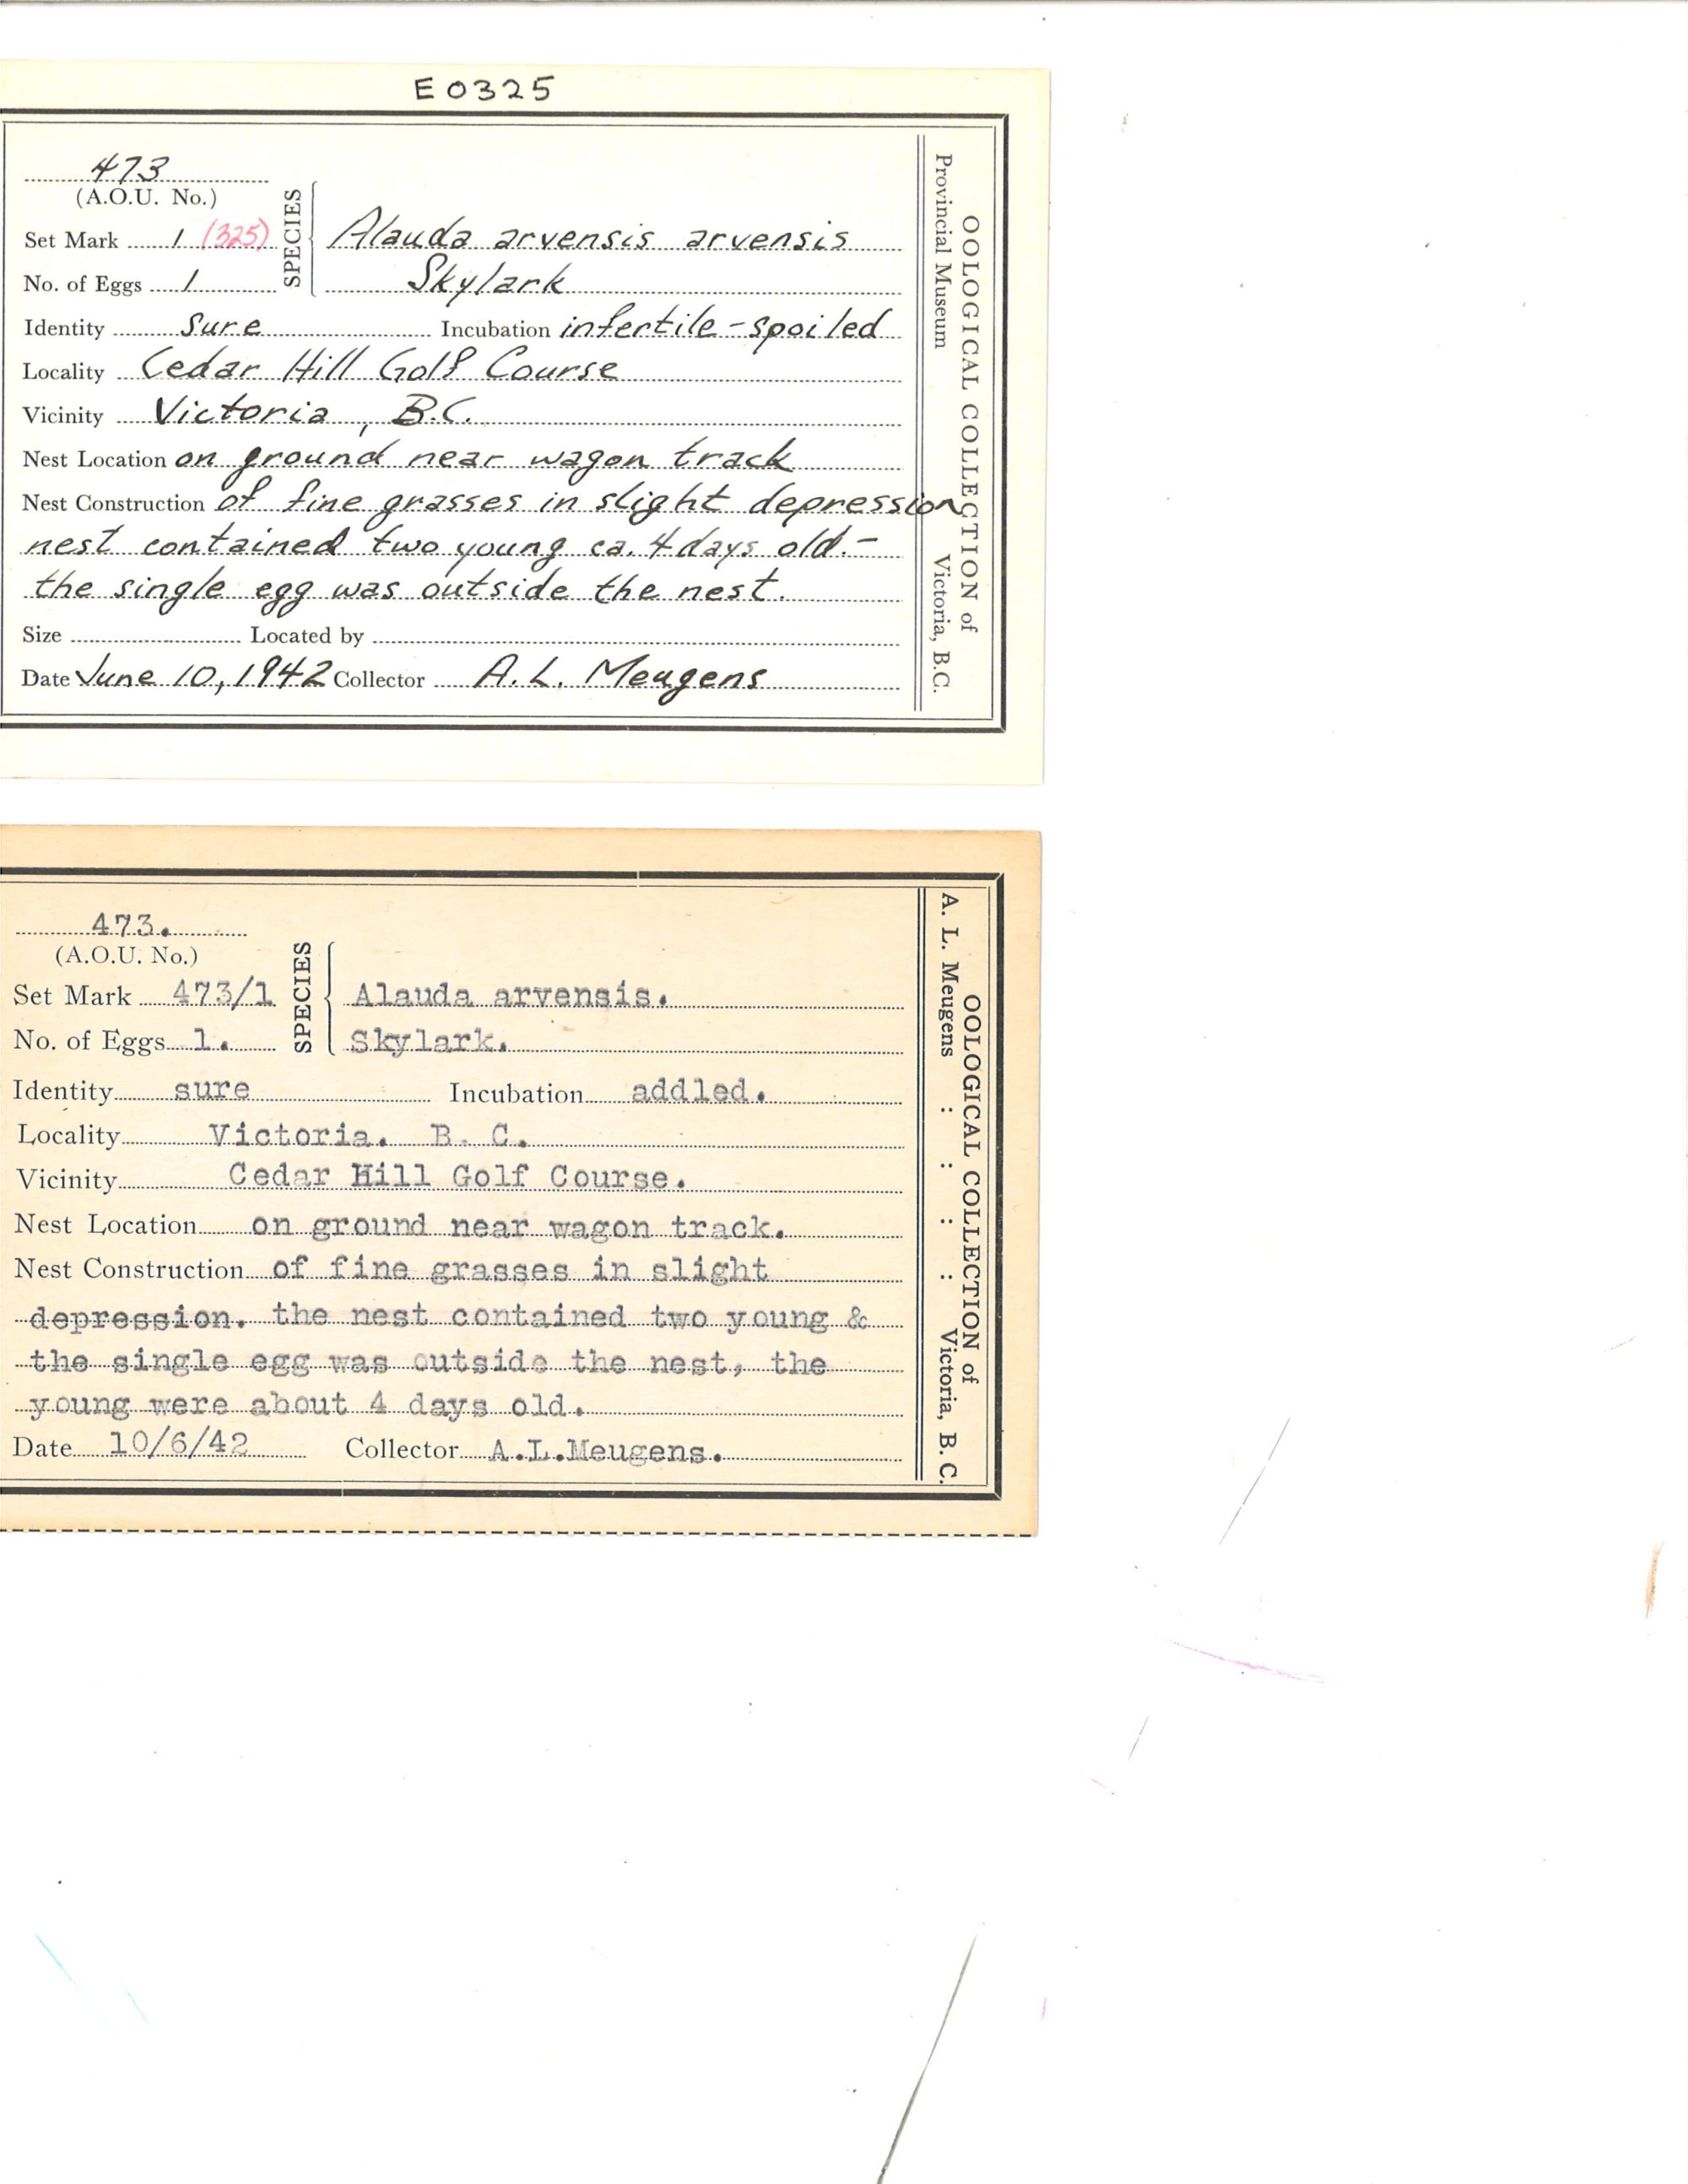 E0325
473
(A.O.U. No.)
Set Mark 1 (325)
No. of Eggs 1
SPECIES
Alauda arvensis arvensis
Skylark
Identity sure Incubation infertile-spoiled
Locality Cedar Hill Golf Course
Vicinity Victoria, B.C.
Nest Location on ground near wagon track
Nest Construction of fine grasses in slight depression
nest contained two young ca. 4 days old.-
the single egg was outside the nest.
Size Located by
Date June 10, 1942 Collector A. L. Meugens
OOLOGICAL COLLECTION of
Provincial Museum Victoria, B.C.
473.
(A.O.U. No.)
Set Mark 473/1
No. of Eggs 1.
SPECIES
Alauda arvensis.
Skylark.
Identity sure Incubation addled.
Locality Victoria. B. C.
Vicinity Cedar Hill Golf Course.
Nest Location on ground near wagon track.
Nest Construction of fine grasses in slight
depression. the nest contained two young &
the single egg was outside the nest, the
young were about 4 days old.
Date 10/6/42 Collector A.L.Meugens.
OOLOGICAL COLLECTION of
A. L. Meugens : : : : Victoria, B. C.